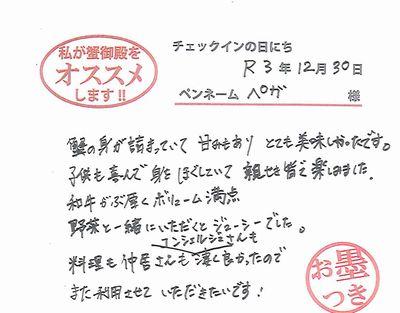 私が蟹御殿を
オススメ
します!!
チェックインの日にち
R3年12月30日
ペンネーム ペガ 様
蟹の身が詰まっていて 甘みもあり とても美味しかったです。
子供も喜んで身をほぐしていて 親せき皆で楽しめました。
和牛がぶ厚く ボリューム満点
野菜と一緒にいただくと ジューシーでした。
コンシェルジュさんも
料理も仲居さんも凄く良かったので
また利用させて いただきたいです!
お墨
つき